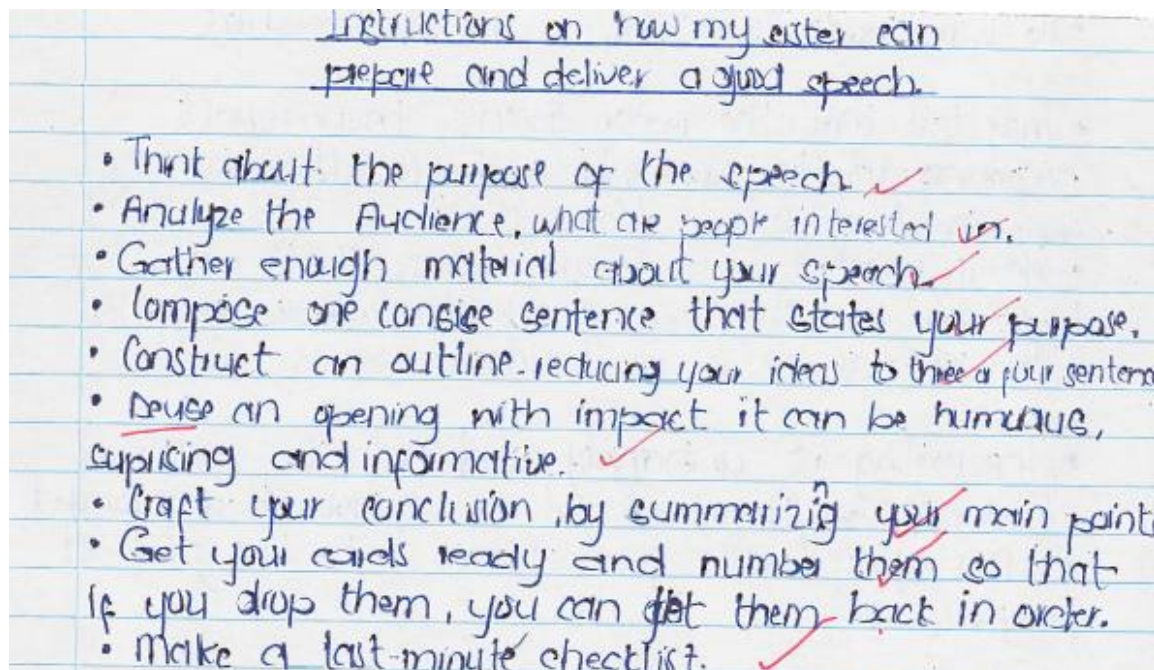 Instructions on how my sister can
prepare and deliver a good speech.
• Think about the purpose of the speech.
• Analyze the Audience, what are people interested in.
• Gather enough material about your speech.
• Compose one consise sentence that states your purpose.
• Construct an outline-reducing your ideas to three or four sentenc
• Deuse an opening with impact it can be humurus,
suprising and informative.
• Craft your conclusion, by summarizing your main point
• Get your cards ready and number them so that
if you drop them, you can get them back in order.
• Make a last-minute checklist.